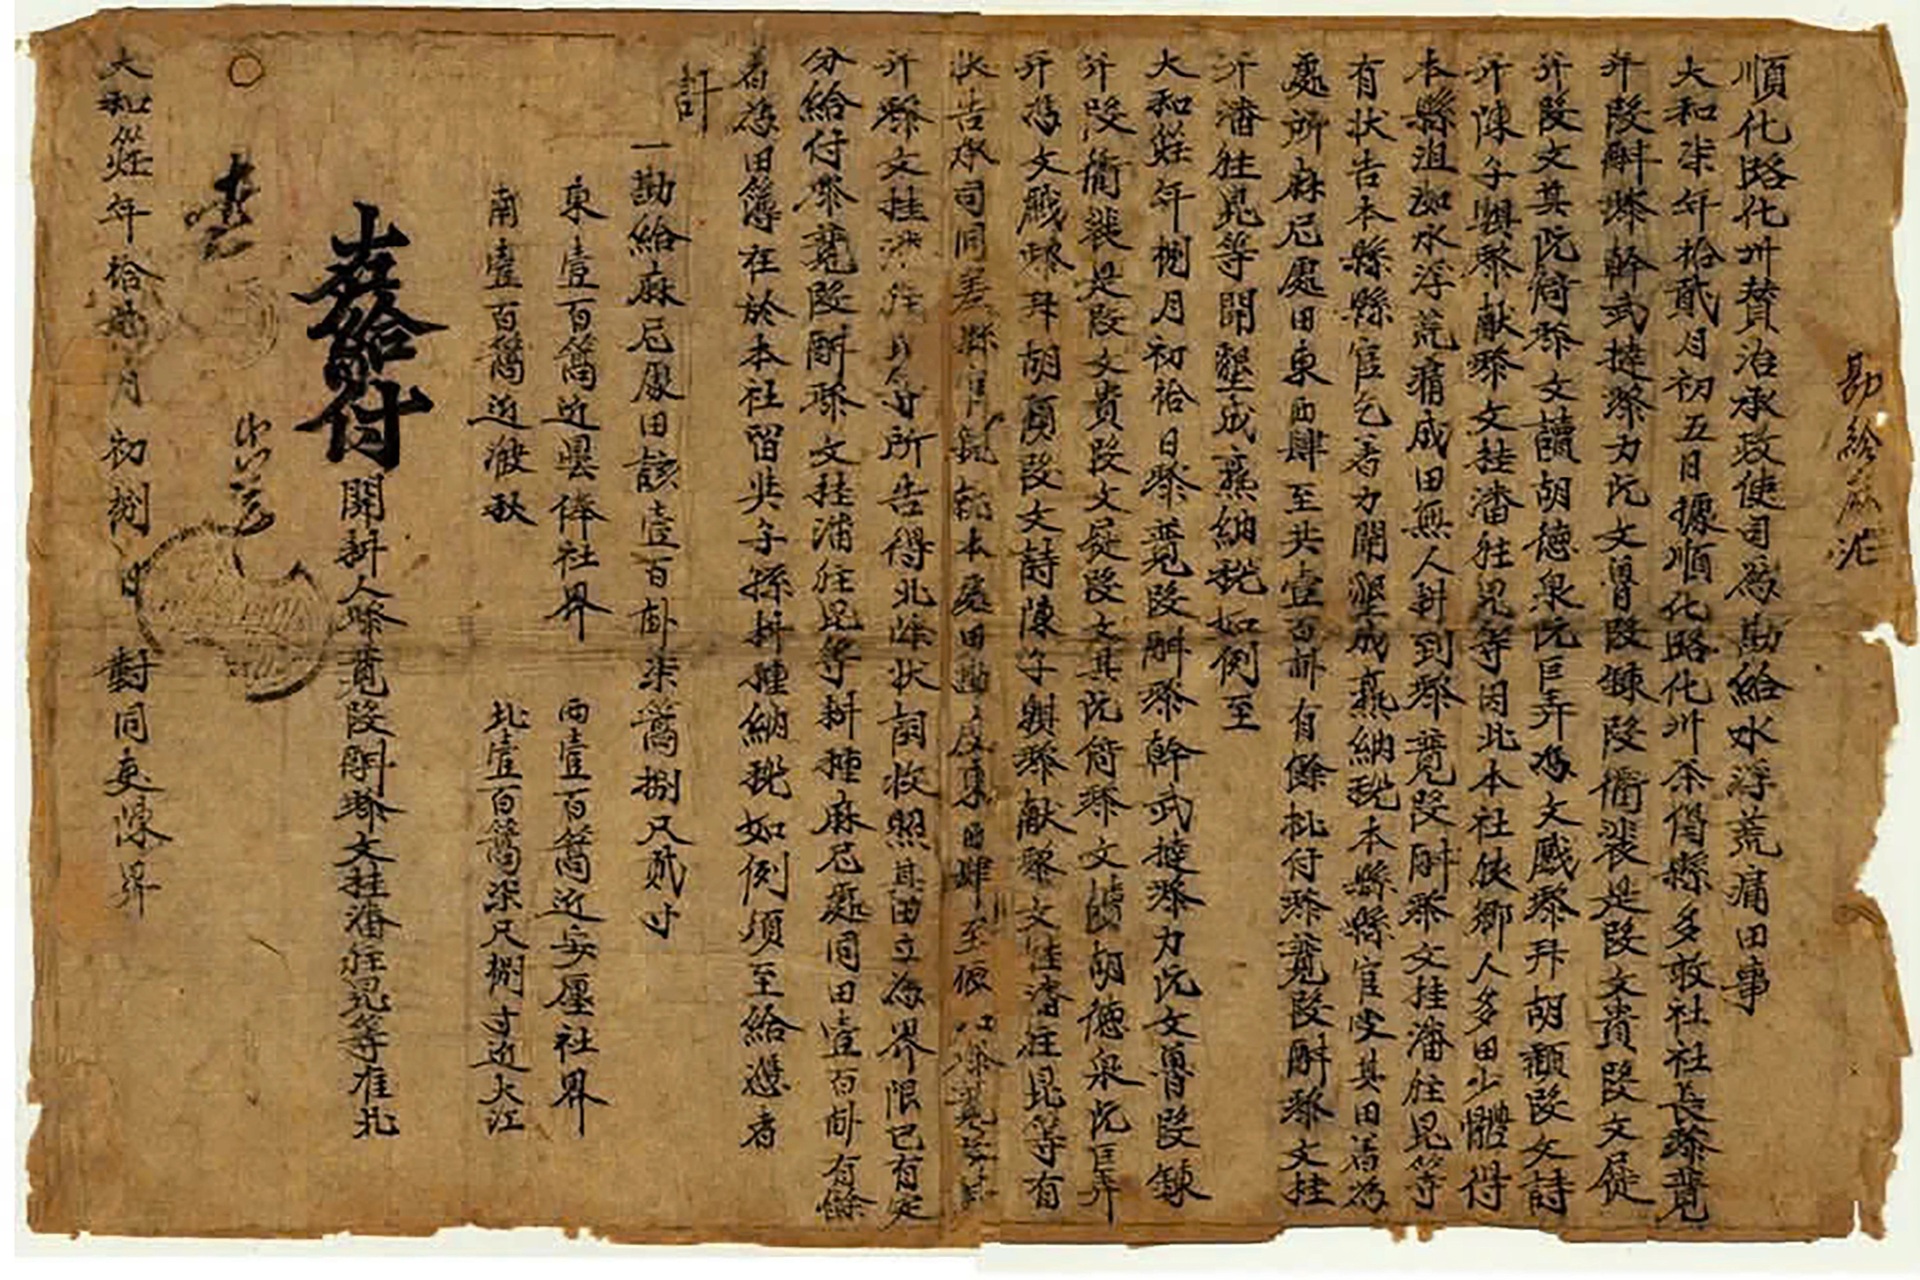 勘給麻
順化路化州贊治承政使司為勘給水浮荒癈田事
大和柒年拾貳月初五日據順化路化州茶偝縣多敢社社長黎覽
并段㪷黎幹武撻黎力阮文曾段鍊段衝裴是段文貴段文屣
并段文其阮筒黎文讀胡德泉阮巨弄馮文戲黎拜胡顔段文詩
并陳子騏黎献黎文挂潘胜昆等因此本社侠鄉人多田少體得
本縣沮洳水浮荒癈成田無人耕到黎覽段㪷黎文挂潘胜昆等
有状告本縣縣官乞着力開墾成熟納稅本縣縣官受其田着為
處所麻尼處田東西肆至共壹百畝有餘批付黎覽段㪷黎文挂
并潘胜昆等開墾成熟納稅如例至
大和年捌月初拾日黎覽段㪷黎幹武撻黎力阮文曾段鍊
并段衝裴是段文貴段文屣段文其阮筒黎文讀胡德泉阮巨弄
并馮文戲黎拜胡顔段文詩陳子騏黎献黎文挂潘胜昆等有
状告承司同差縣官就本處田勘度東西肆至
并黎文挂潘胜昆等所告得此除状詞收照其田立為界限已有定
分給付黎覽段㪷黎文挂潘胜昆等耕種麻尼處同田壹百畝有餘
着為田簿在於本社留與子孫耕種納稅如例須至給憑者
計
一勘給麻尼處田該壹百畝柒篙捌尺貳寸
東壹百篙近曇俸社界 西壹百篙近安壓社界
南壹百篙近潡秋 北壹百篙柒尺捌寸近大江
右給付開耕人黎覽段㪷黎文挂潘胜昆等准此
大和年拾月初捌日對同吏陳昇